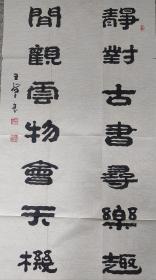 靜對古書尋樂趣
閒觀雲物會天機